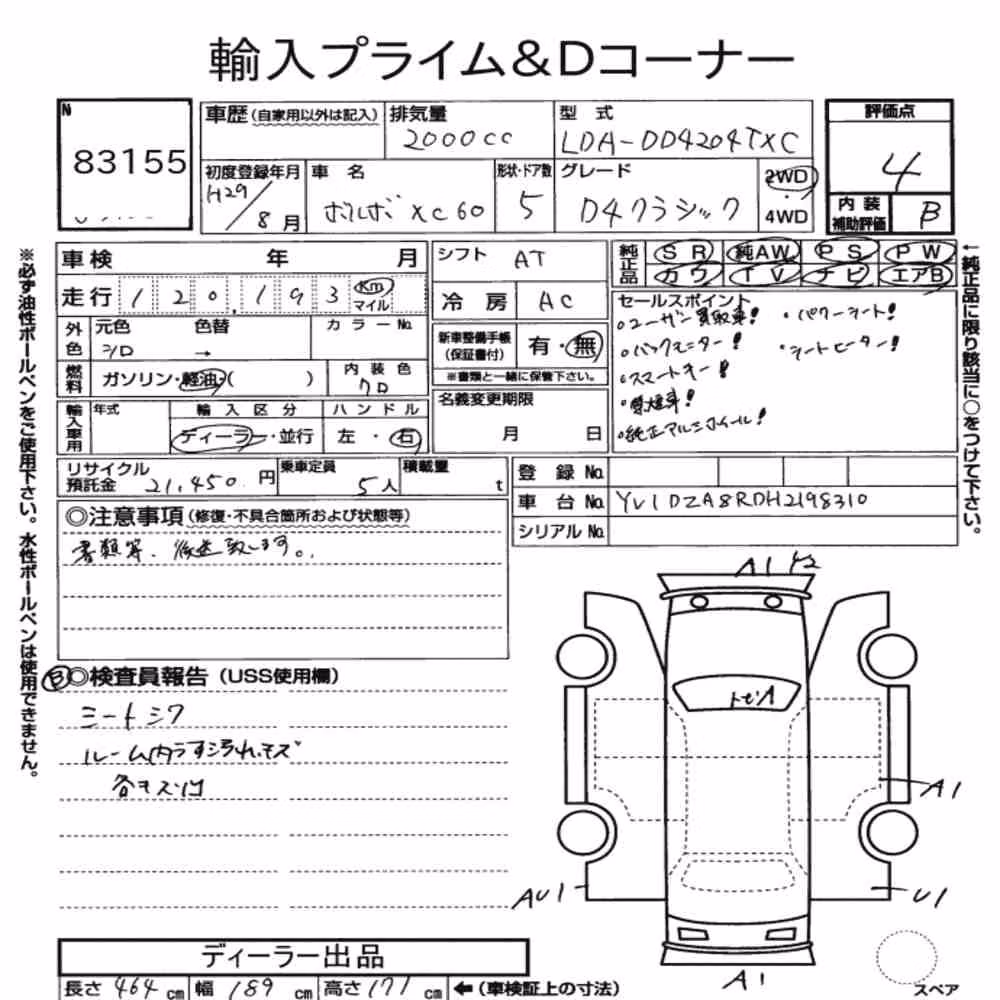 輸入プライム&Dコーナー
N
83155
車歴(自家用以外は記入)
排気量
2000cc
型式
LDA-DD4204TXC
初度登録年月
H29/8月
車名
ボルボ XC60
形状・ドア数
5
グレード
D4クラシック
2WD
・
4WD
評価点
4
内装
補助評価
B
車検 年 月
走行 120,193 Km
マイル
外色
元色 色替 カラーNo.
シロ →
燃料
ガソリン・軽油・( )
内装色
クロ
輸入車用
年式
輸入区分
ディーラー・並行
ハンドル
左・右
シフト AT
冷房 AC
新車整備手帳
(保証書付)
有・無
※書類と一緒に保管下さい。
名義変更期限
月 日
純正品
SR 純AW PS PW
カワ TV ナビ エアB
セールスポイント
・ユーザー買取車! ・パワーシート!
・バックモニター! ・シートヒーター!
・スマートキー!
・禁煙車!
・純正アルミホイール!
←純正品に限り該当に○をつけて下さい。
リサイクル
預託金 21,450円
乗車定員
5人
積載量
t
登録No.
車台No. YV1DZA8RDH2198310
シリアルNo.
◎注意事項(修復・不具合箇所および状態等)
書類等、後送致します。
※必ず油性ボールペンをご使用下さい。水性ボールペンは使用できません。
B
◎検査員報告(USS使用欄)
シートシワ
ルーム内うすヨゴレ、キズ
各キズ、凹
A1 Y2
トビA
A1
AU1
U1
A1
スペア
ディーラー出品
長さ 464cm 幅 189cm 高さ 171cm ←(車検証上の寸法)